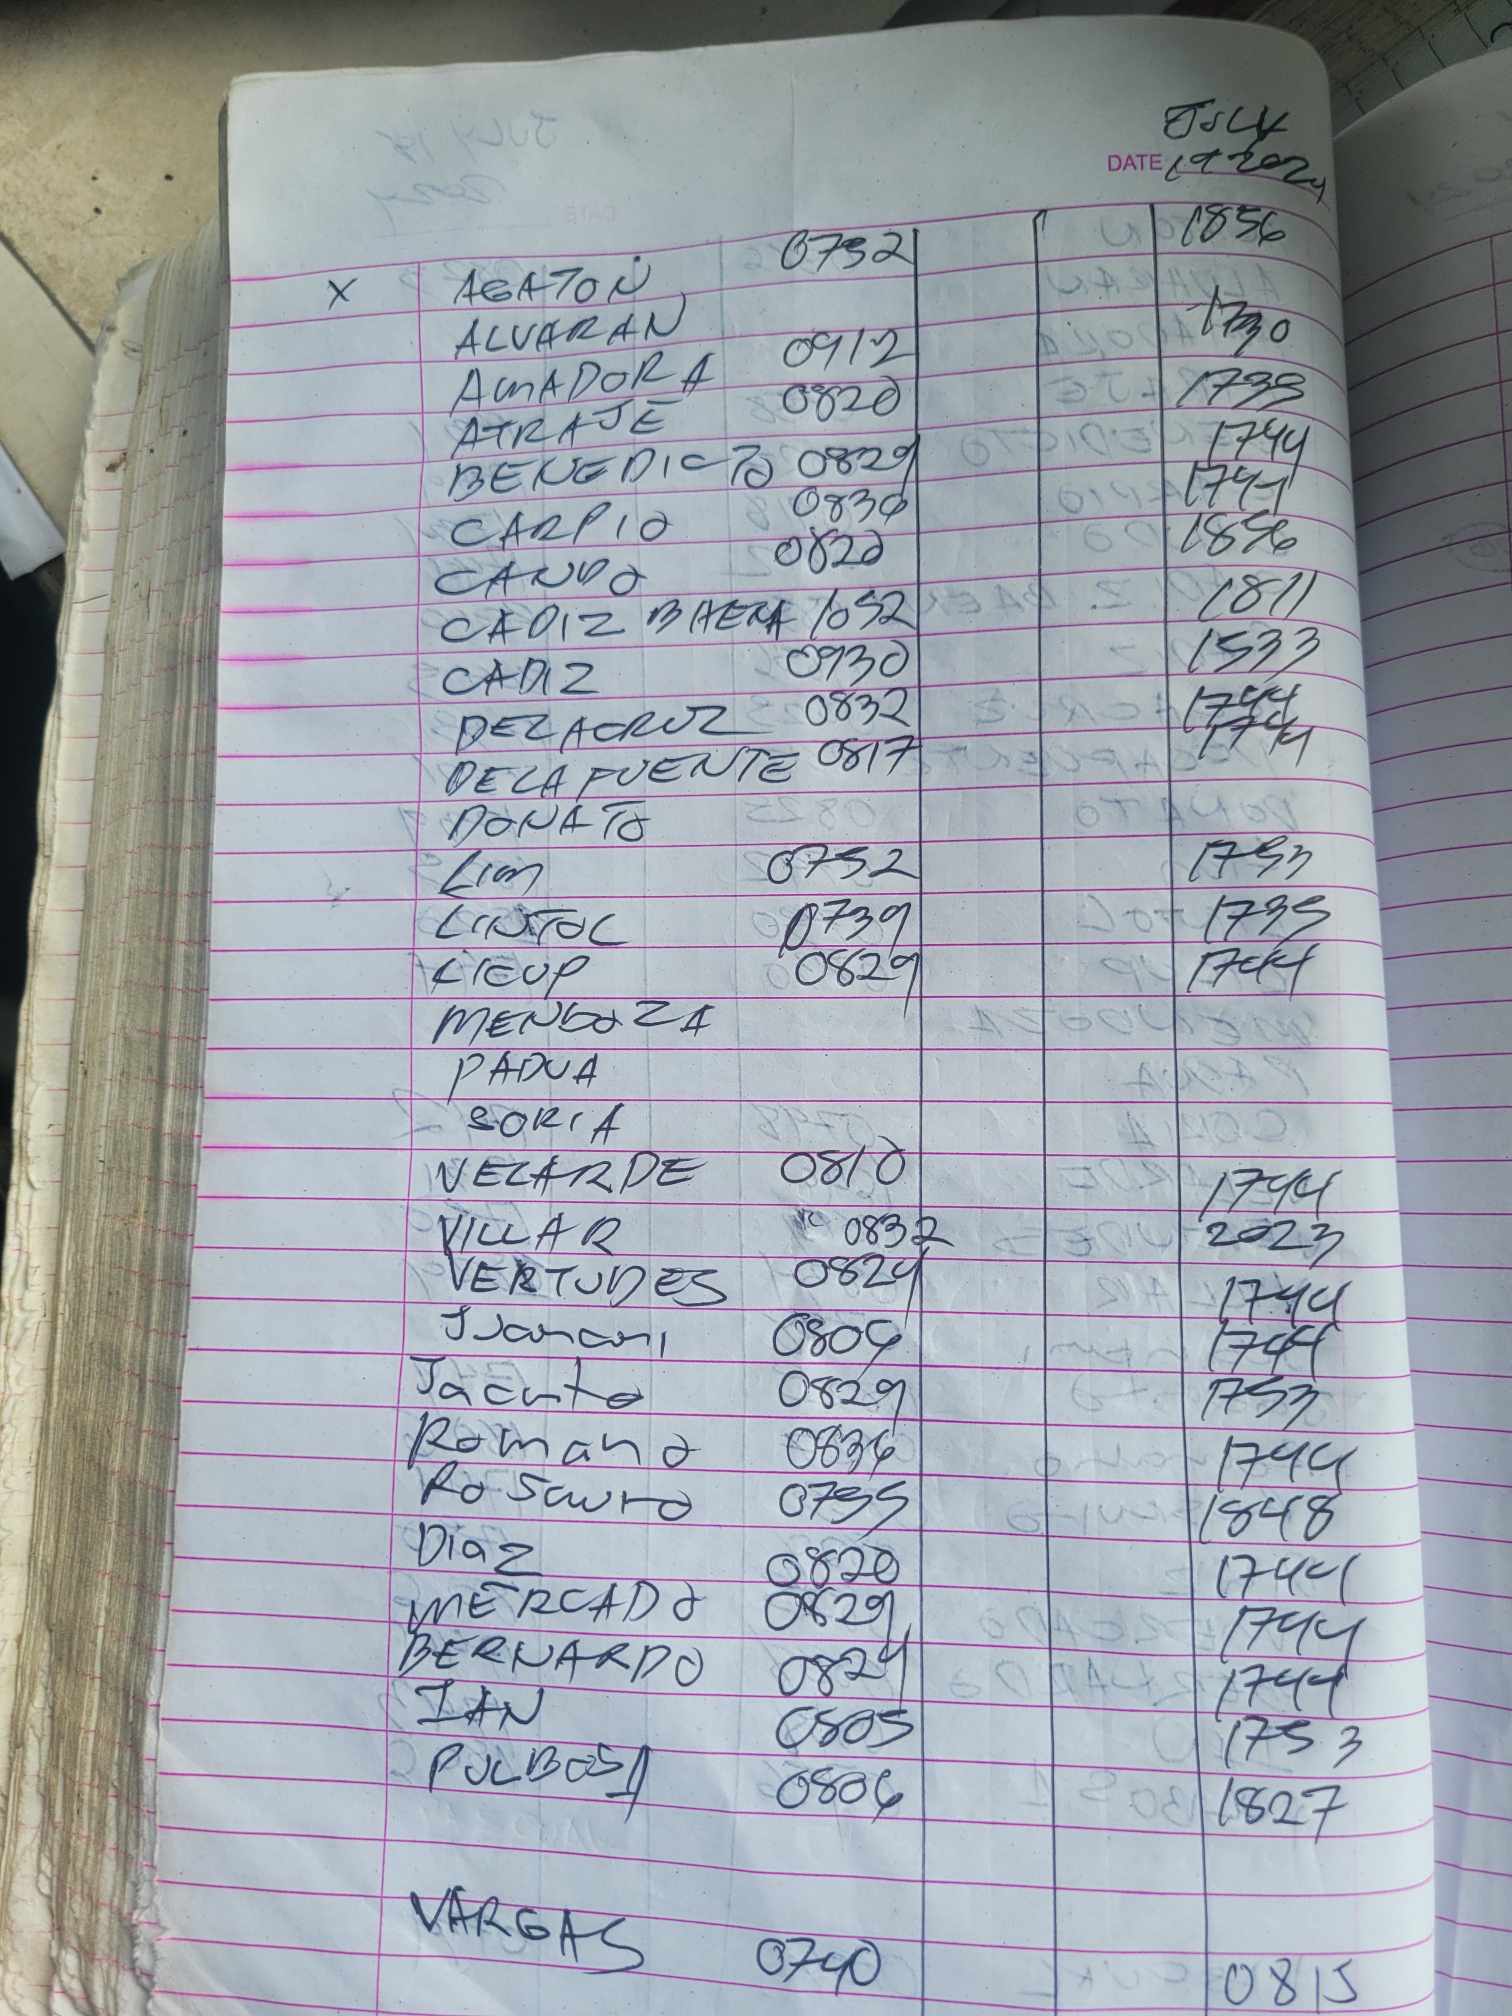 JULY
DATE 19 2024
X AGATON 0752 1856
ALVARAN
AMADORA 0912 1730
ATRAJE 0820 1733
BENEDICTO 0829 1744
CARPIO 0836 1744
CANDO 0820 1856
CADIZ BAERA 1052 1811
CADIZ 0930 1533
DELACRUZ 0832 1744
DELA FUENTE 0817 1744
DONATO
LIM 0752 1753
LINTOC 0739 1735
LIEUP 0829 1744
MENDOZA
PADUA
SORIA
VELARDE 0810 1744
VILLAR 0832 2023
VERTUDES 0824 1744
0806 1744
Jacinto 0829 1753
Romano 0836 1744
Rosauro 0755 1848
Diaz 0820 1744
MERCADO 0829 1744
BERNARDO 0824 1744
IAN 0805 1753
PULBOSA 0806 1827
VARGAS 0740 0815